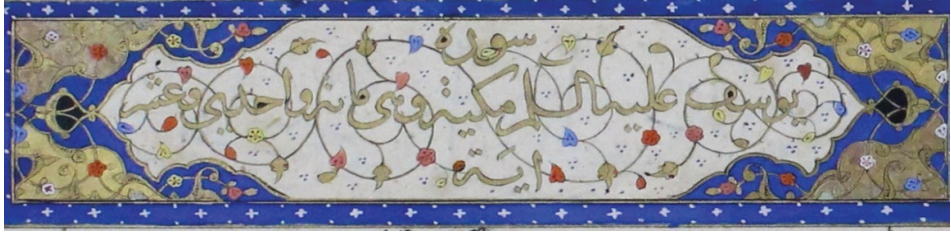 سورة
يوسف عليه السلام مكية وهى مائة واحدى وعشر
اية